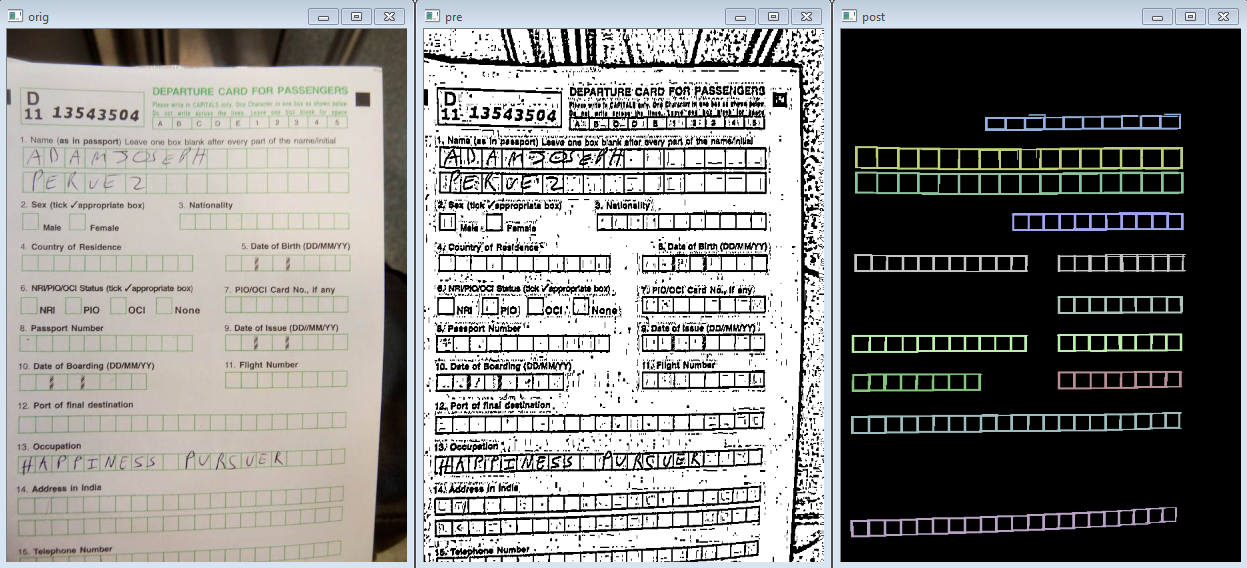 orig
D
11 13543504
DEPARTURE CARD FOR PASSENGERS
Please write in CAPITALS only. One Character in one box as shown below
Do not write across the lines. Leave one box blank for space
A B C D E 1 2 3 4 5
1. Name (as in passport) Leave one box blank after every part of the name/initial
ADAMJOSEPH
PERVEZ
2. Sex (tick ✓appropriate box)
Male Female
3. Nationality
4. Country of Residence
5. Date of Birth (DD/MM/YY)
6. NRI/PIO/OCI Status (tick ✓appropriate box)
NRI PIO OCI None
7. PIO/OCI Card No., if any
8. Passport Number
9. Date of Issue (DD/MM/YY)
10. Date of Boarding (DD/MM/YY)
11. Flight Number
12. Port of final destination
13. Occupation
HAPPINESS PURSUER
14. Address in India
15. Telephone Number
pre
D
11 13543504
DEPARTURE CARD FOR PASSENGERS
Please write in CAPITALS only. One Character in one box as shown below
Do not write across the lines. Leave one box blank for space
A B C D E 1 2 3 4 5
1. Name (as in passport) Leave one box blank after every part of the name/initial
ADAMJOSEPH
PERVEZ
2. Sex (tick ✓appropriate box)
Male Female
3. Nationality
4. Country of Residence
5. Date of Birth (DD/MM/YY)
6. NRI/PIO/OCI Status (tick ✓appropriate box)
NRI PIO OCI None
7. PIO/OCI Card No., if any
8. Passport Number
9. Date of Issue (DD/MM/YY)
10. Date of Boarding (DD/MM/YY)
11. Flight Number
12. Port of final destination
13. Occupation
HAPPINESS PURSUER
14. Address in India
15. Telephone Number
post